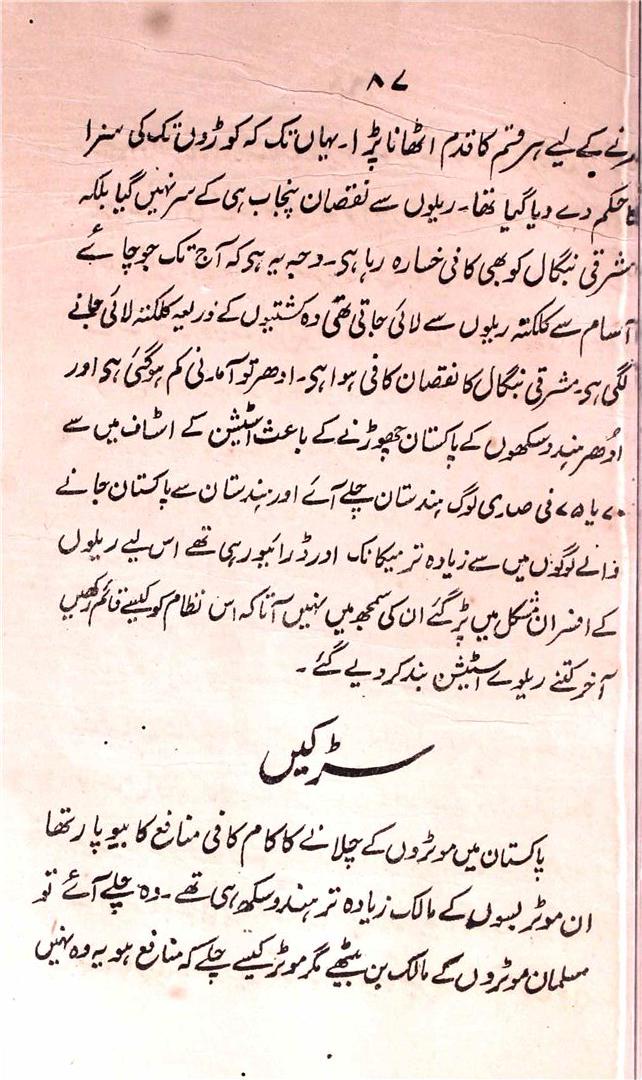 ۸۷
کرنے کے لیے ہر قسم کا قدم اٹھانا پڑا۔ یہاں تک کہ کوڑوں تک کی سزا
کا حکم دے دیا گیا تھا۔ ریلوں سے نقصان پنجاب ہی کے سر نہیں گیا بلکہ
مشرقی بنگال کو بھی کافی خسارہ رہا ہی۔ وجہ یہ ہی کہ آج تک جو چائے
آسام سے کلکتہ ریلوں سے لائی جاتی تھی وہ کشتیوں کے ذریعہ کلکتہ لائی جانے
لگی ہی۔ مشرقی بنگال کا نقصان کافی ہوا ہی۔ ادھر تو آمدنی کم ہوگئی ہی اور
اُدھر ہندو سکھوں کے پاکستان چھوڑنے کے باعث اسٹیشن کے اسٹاف میں سے
۷۰ یا ۷۵ فی صدی لوگ ہندستان چلے آئے اور ہندستان سے پاکستان جانے
والے لوگوں میں سے زیادہ تر میکانک اور ڈرائیور ہی تھے اس لیے ریلوں
کے افسران مشکل میں پڑ گئے ان کی سمجھ میں نہیں آتا کہ اس نظام کو کیسے قائم رکھیں
آخر کتنے ریلوے اسٹیشن بند کر دیے گئے۔
سڑکیں
پاکستان میں موٹروں کے چلانے کا کام کافی منافع کا بیوپار تھا
ان موٹر بسوں کے مالک زیادہ تر ہندو سکھ ہی تھے۔ وہ چلے آئے تو
مسلمان موٹروں کے مالک بن بیٹھے مگر موٹر کیسے چلے کہ منافع ہو یہ وہ نہیں